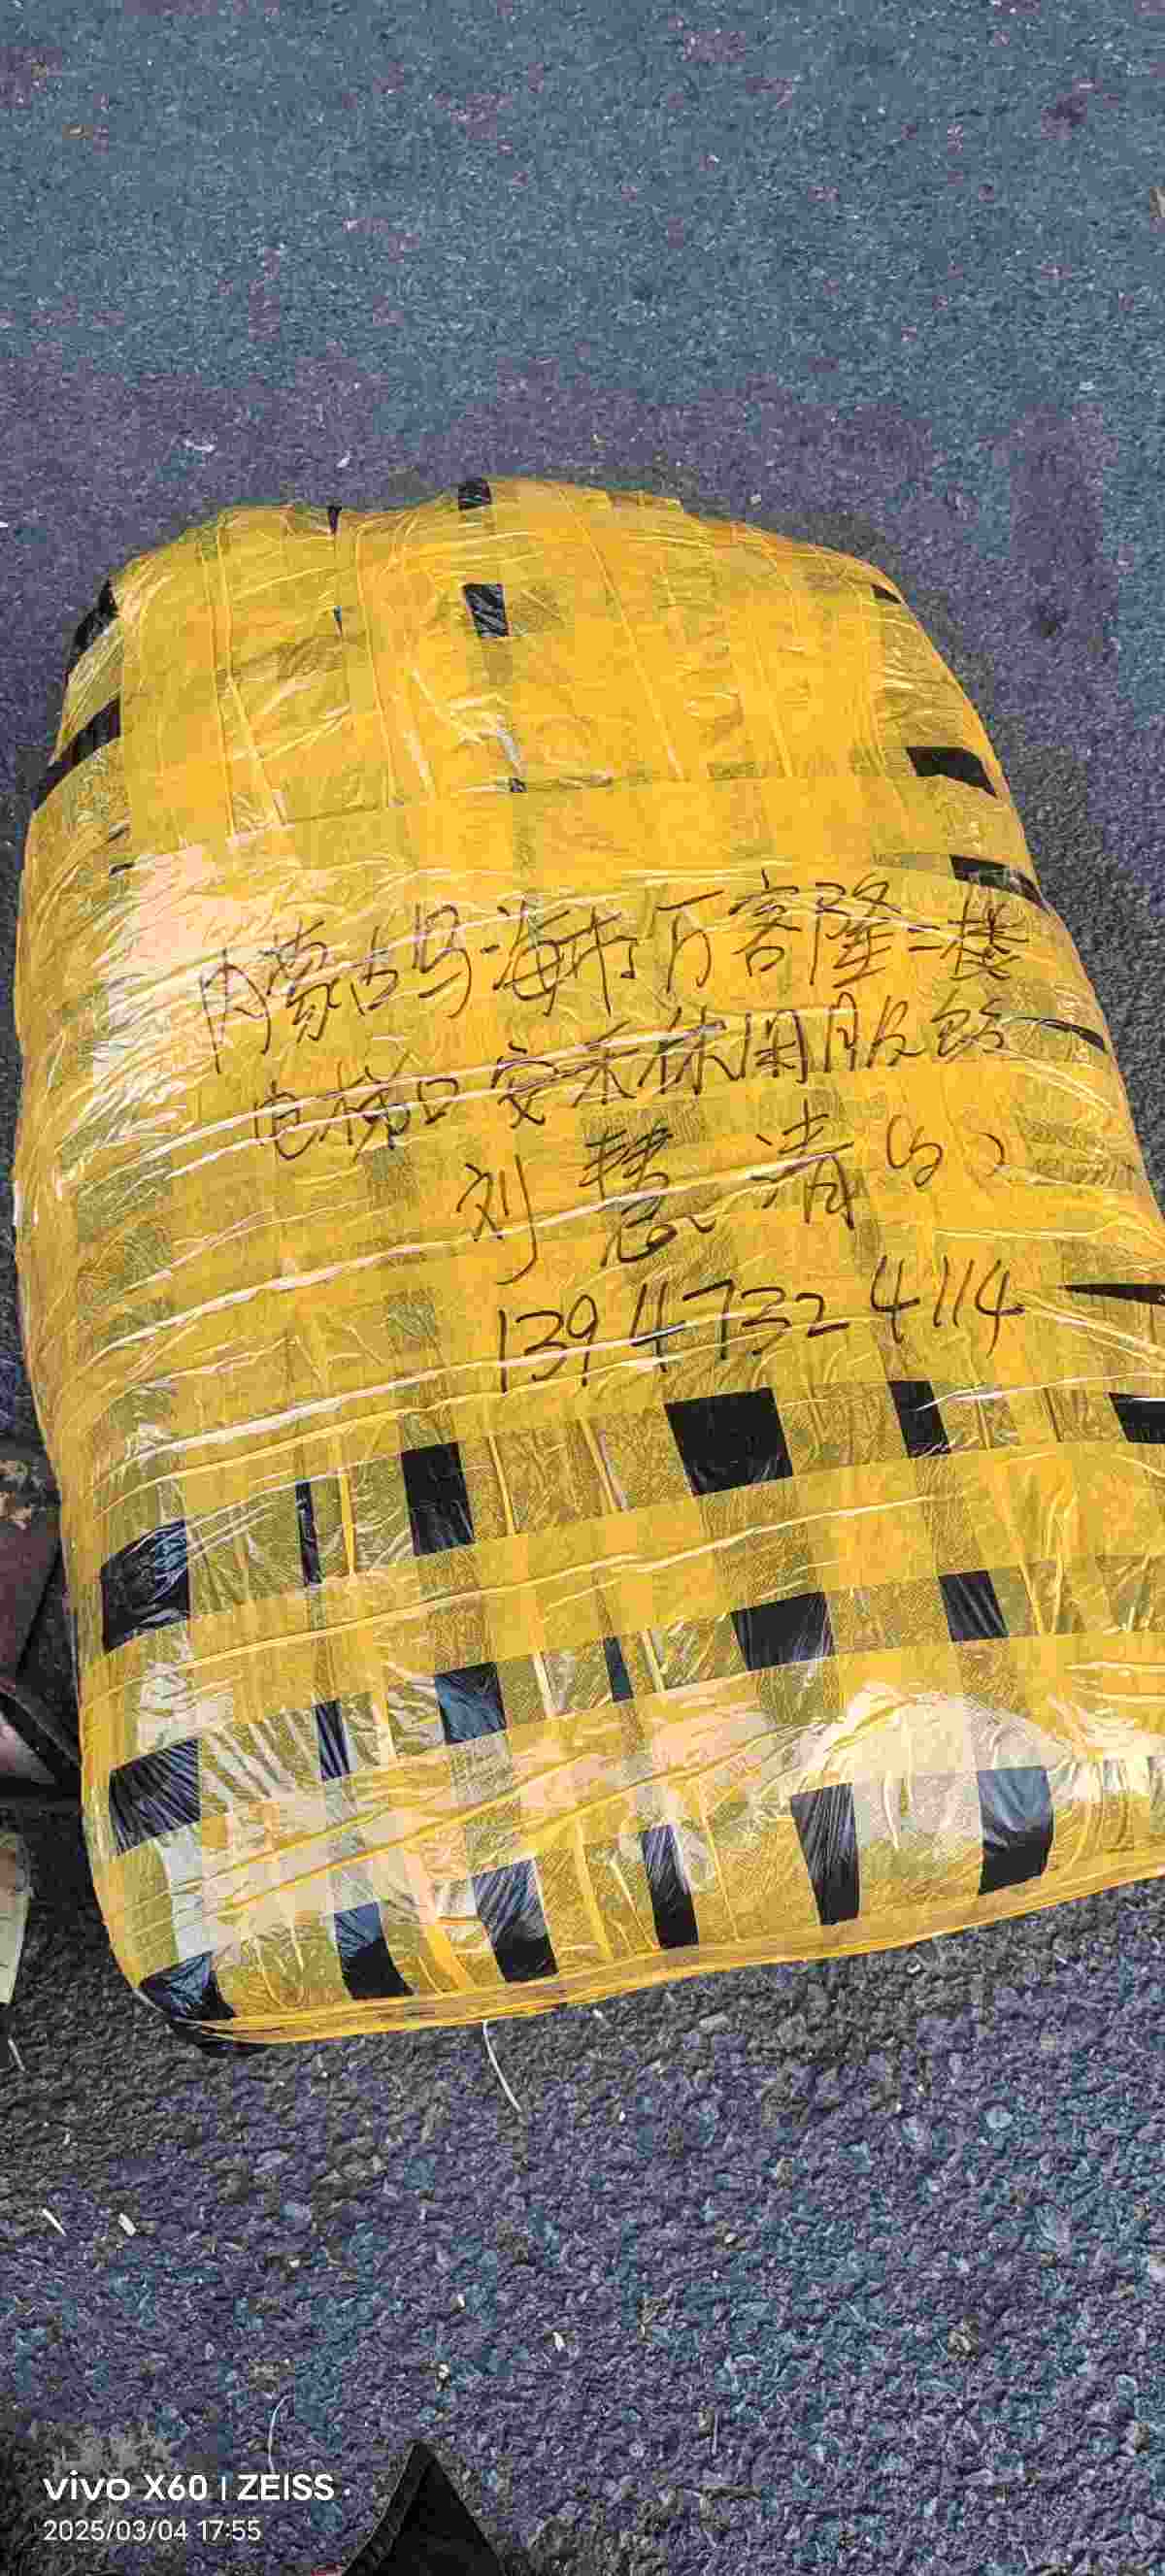 内蒙古乌海市万客隆二楼
电梯口安禾休闲服饰
刘慧清(2)
139 4732 4114
vivo X60 | ZEISS
2025/03/04 17:55